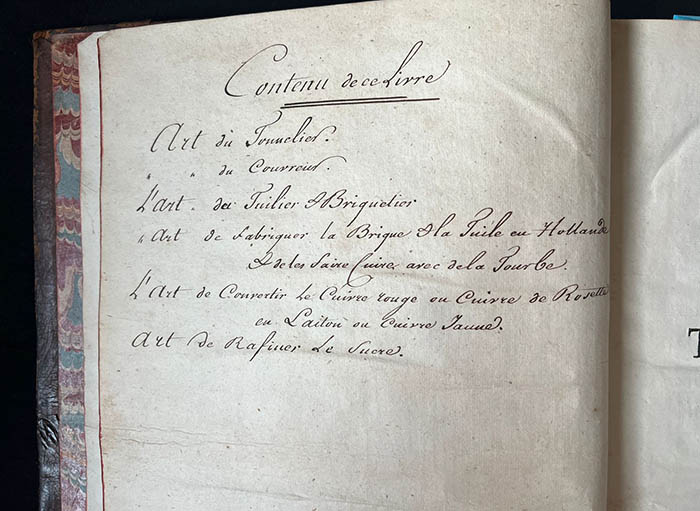 Contenu de ce Livre
Art du Tonnelier.
" " du Couvreur.
L'Art du Tuilier & Briquetier
" Art de fabriquer la Brique & la Tuile en Hollande
& de les faire Cuire avec de la Tourbe.
L'Art de Convertir Le Cuivre rouge ou Cuivre de Rosette
en Laiton ou Cuivre Jaune.
Art de Rafiner Le Sucre.
T